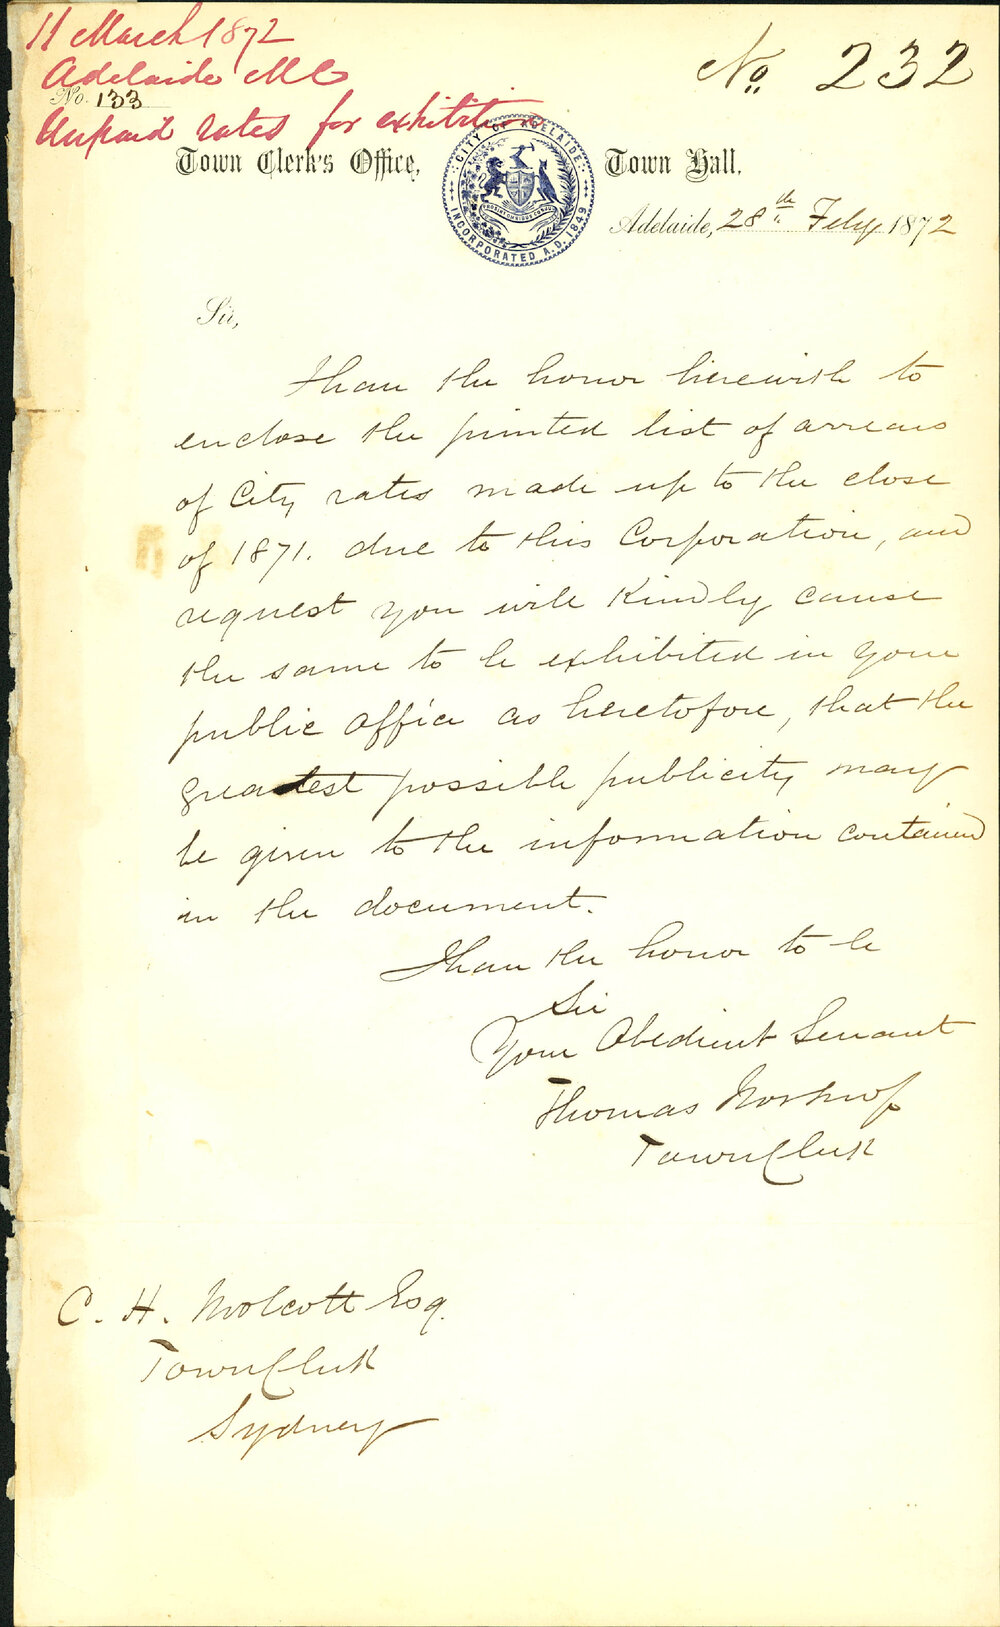 11 March 1872
Adelaide MC
No. 133
Unpaid rates for exhibition
No. 232
Town Clerk's Office,
CITY OF ADELAIDE
INCORPORATED A.D. 1849
Town Hall,
Adelaide, 28th Feby 1872
Sir,
I have the honor herewith to
enclose the printed list of arrears
of City rates made up to the close
of 1871. due to this Corporation, and
request you will Kindly cause
the same to be exhibited in your
public office as heretofore, that the
greatest possible publicity may
be given to the information contained
in the document.
I have the honor to be
Sir
Your Obedient Servant
Thomas Worsnop
Town Clerk
C. H. Woolcott Esq.
Town Clerk
Sydney